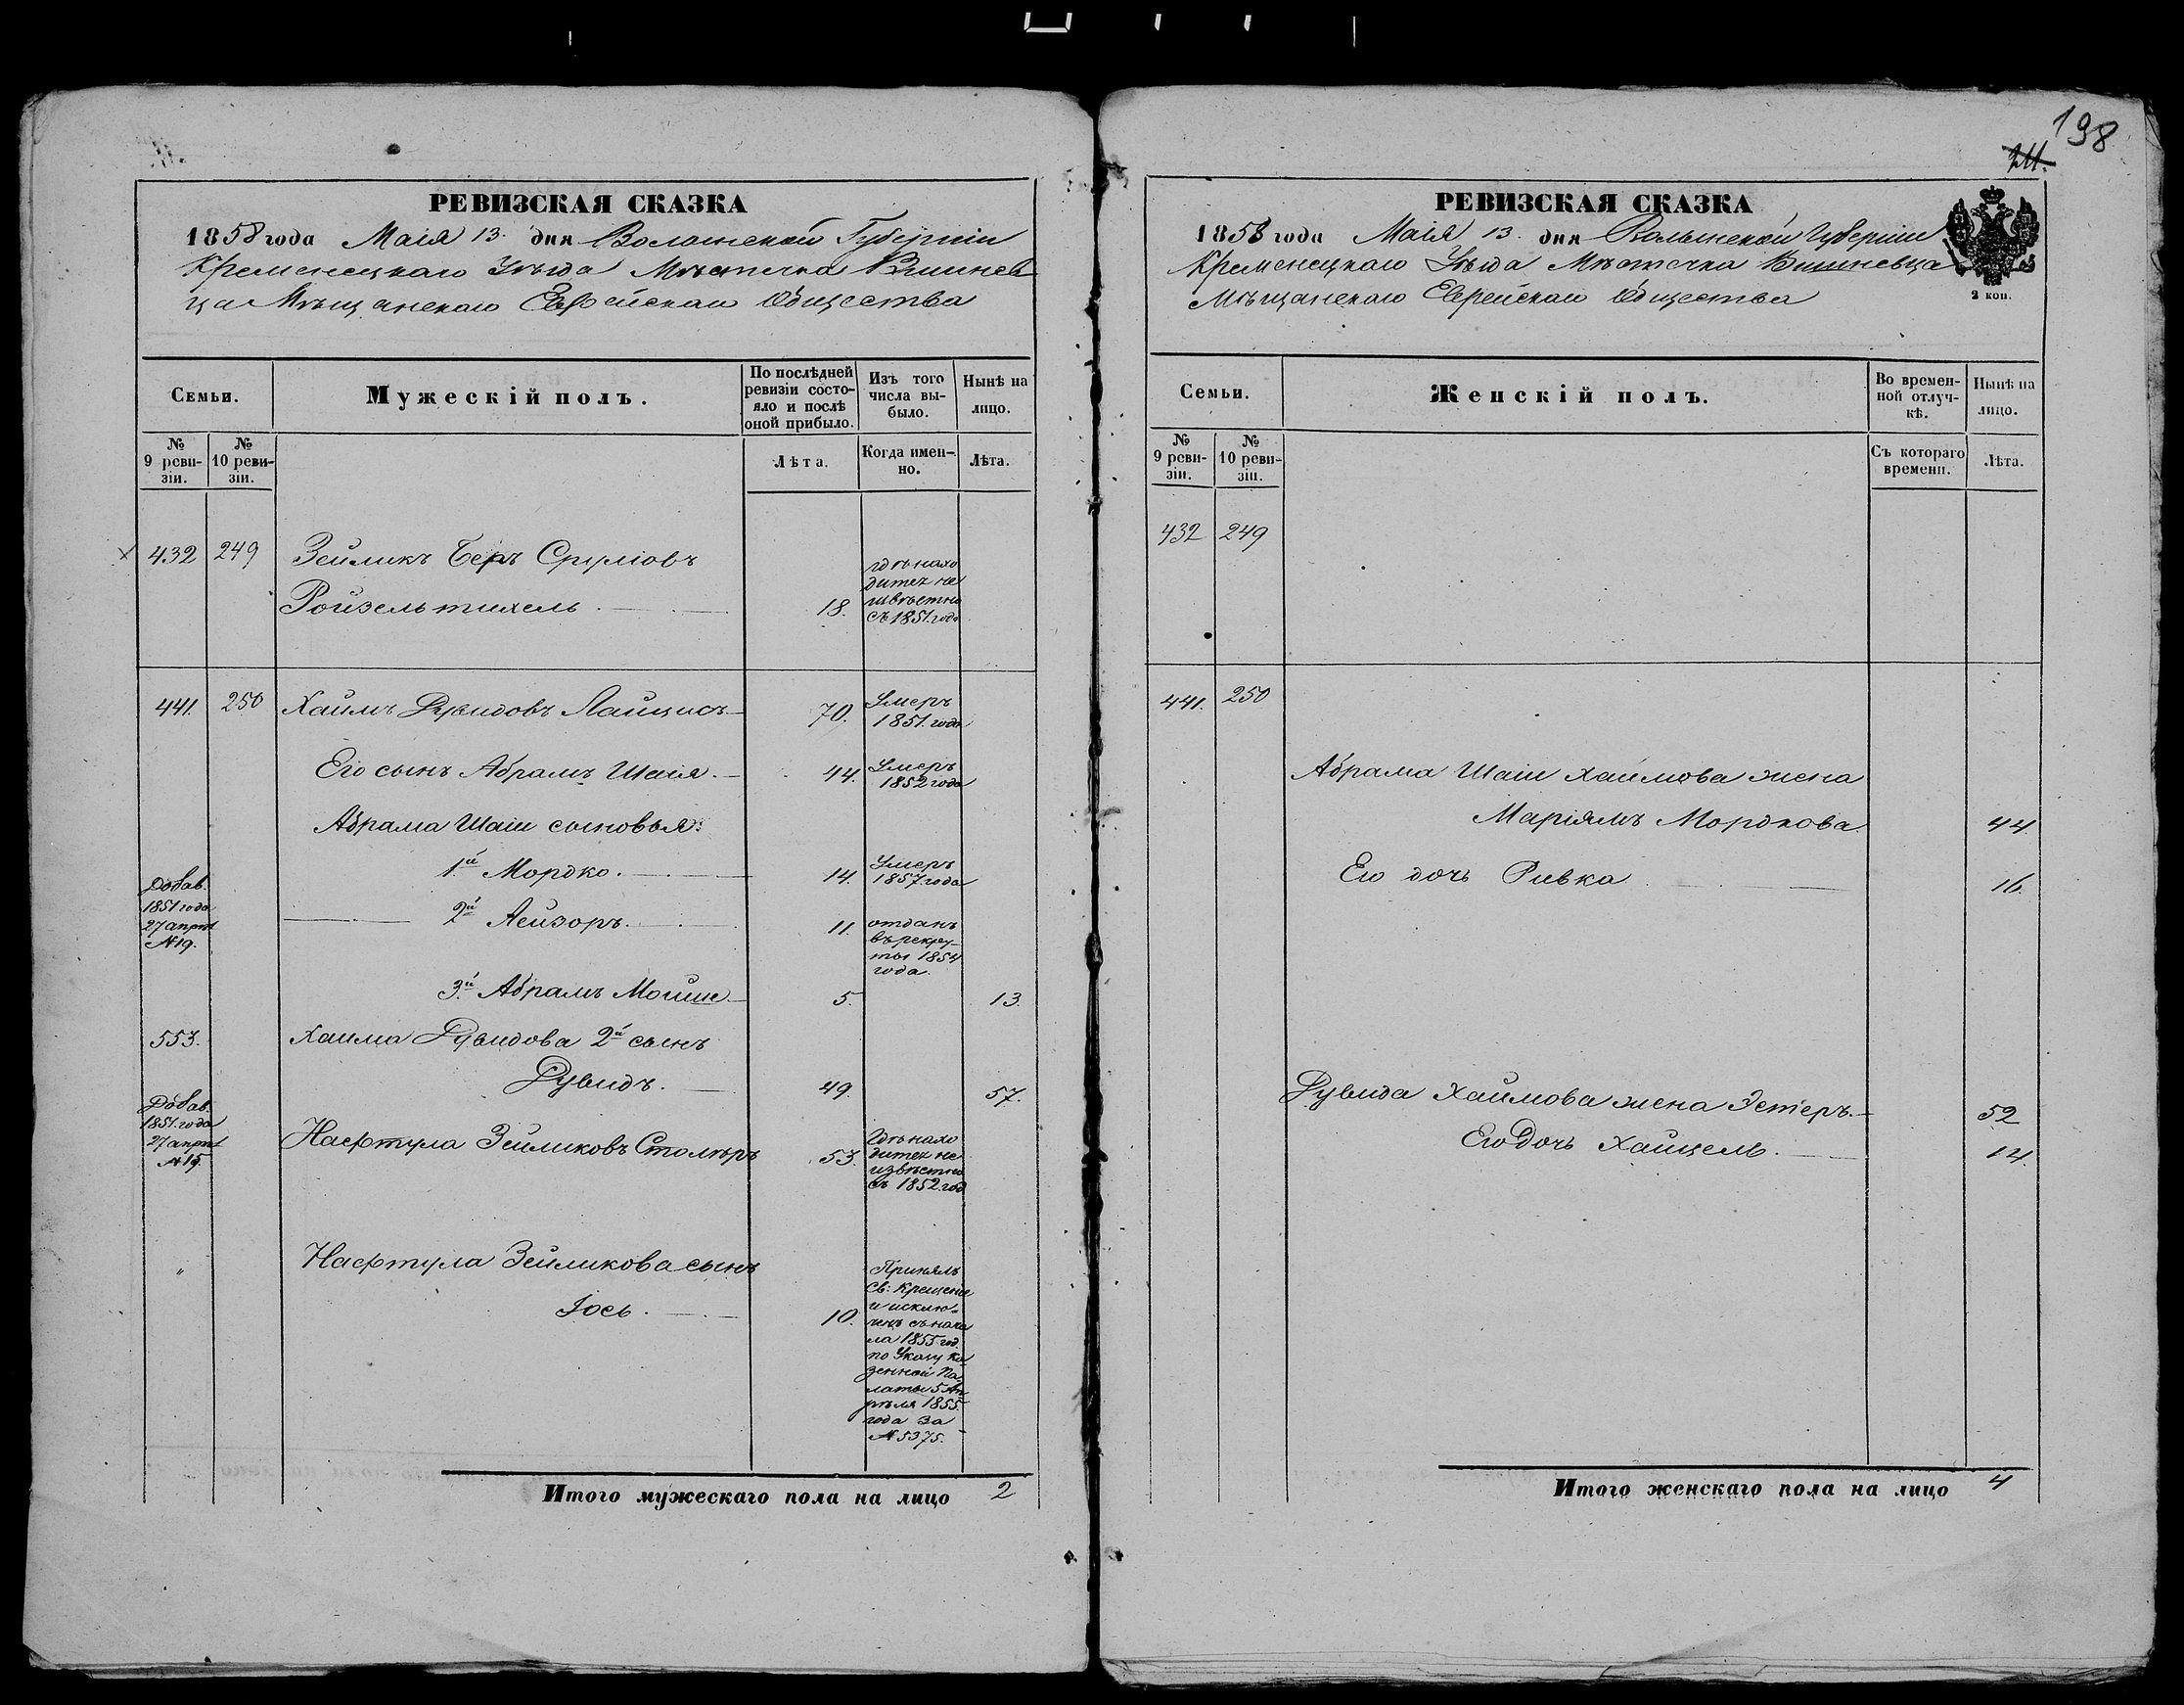 198
РЕВИЗСКАЯ СКАЗКА
1858 года Маія 13. дня Волынской Губерніи
Кременецкаго Уѣзда Мѣстечка Вишнев
ца Мѣщанскаго Еврейскаго Общества
Семьи.
Мужескій полъ.
По послѣдней ревизіи состояло и послѣ оной прибыло.
Изъ того числа выбыло.
Нынѣ на лицо.
№ 9 ревизіи.
№ 10 ревизіи.
Лѣта.
Когда именно.
Лѣта.
432 249 Зейликъ Беръ Сруліовъ
18.
гдѣ нахо
дится не
извѣстно
съ 1851. года
441. 250 Хаимъ Дувидовъ 70.
Умеръ
1851. года
Его сынъ Абрамъ Шаія. 44.
Умеръ
1852 года
Абрама Шаіи сыновья:
1й Мордко. 14.
Умеръ
1857 года
Добав.
1851 года
27 апрѣл
№ 19.
2й Лейзоръ. 11.
отданъ
въ рекру-
ты 1854
года.
3й Абрамъ Мойше 5. 13.
553. Хаима Дувидова 2й сынъ
Дувидъ. 49. 57.
Добав.
1851. года
27 апрѣл
№ 15.
Нафтула Зейликовъ Столяръ 53.
Гдѣ нахо
дится не
извѣстно
съ 1852. год
" Нафтула Зейликова сынъ
Іось. 10.
Принялъ
Св: Крещеніе
и исклю-
ченъ съ нача
ла 1855 год.
по Указу Ка
зенной Па-
латы 5 Ап
рѣля 1855.
года за
№ 5375.
Итого мужескаго пола на лицо 2
РЕВИЗСКАЯ СКАЗКА
1858 года Маія 13. дня Волынской Губерніи
Кременецкаго Уѣзда Мѣстечка Вишневца
Мѣщанскаго Еврейскаго Общества
2 коп.
Семьи.
Женскій полъ.
Во временной отлучкѣ.
Нынѣ на лицо.
№ 9 ревизіи.
№ 10 ревизіи.
Съ котораго времени.
Лѣта.
432 249
441. 250
Абрама Шаіи Хаимова жена
Маріямъ Мордкова. 44
Его дочь Ривка 16.
Дувида Хаимова жена Эстеръ. 52
Его Дочь 14.
Итого женскаго пола на лицо 4